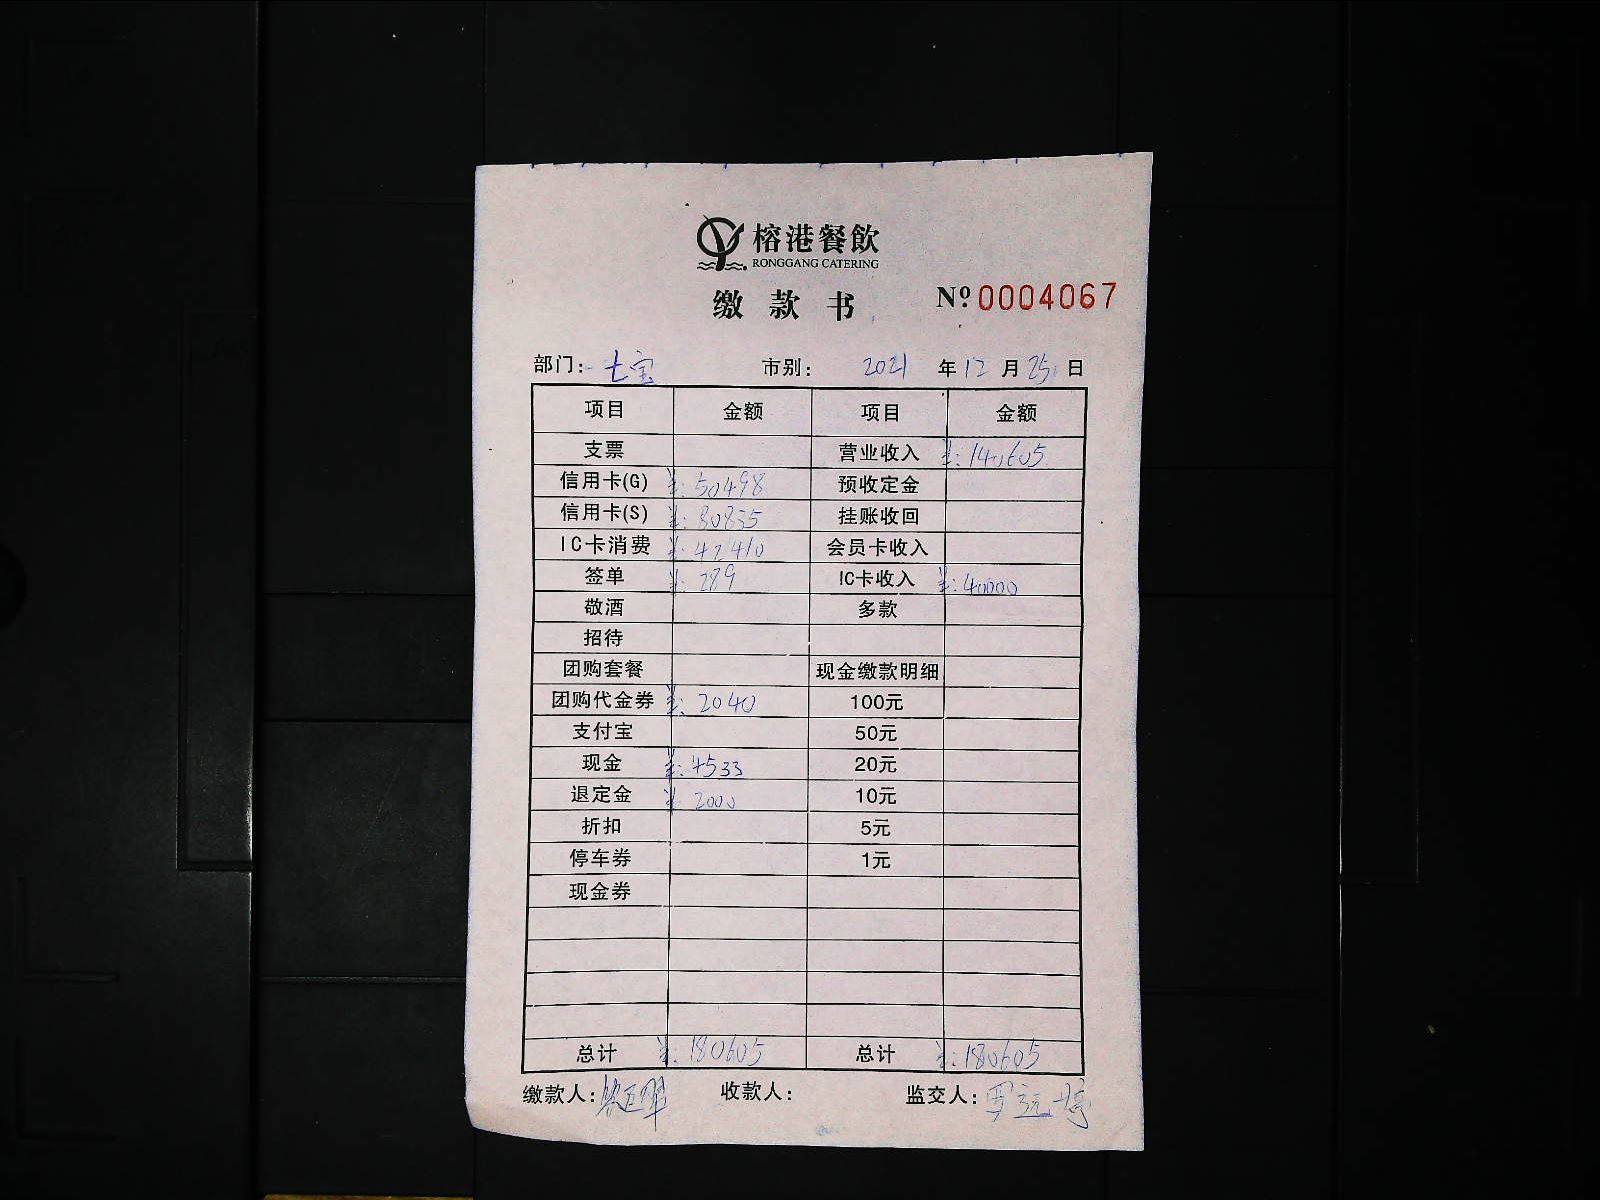 榕港餐飲
RONGGANG CATERING
缴款书 Nº 0004067
部门: 七宝 市别: 2021 年 12 月 25 日
项目 金额 项目 金额
支票 营业收入 ¥:140605
信用卡(G) ¥:50498 预收定金
信用卡(S) ¥:80835 挂账收回
IC卡消费 ¥:42410 会员卡收入
签单 ¥:289 IC卡收入 ¥:40000
敬酒 多款
招待
团购套餐 现金缴款明细
团购代金券 ¥:2040 100元
支付宝 50元
现金 ¥:4533 20元
退定金 ¥:2000 10元
折扣 5元
停车券 1元
现金券
总计 ¥:180605 总计 ¥:180605
缴款人: 收款人: 监交人: